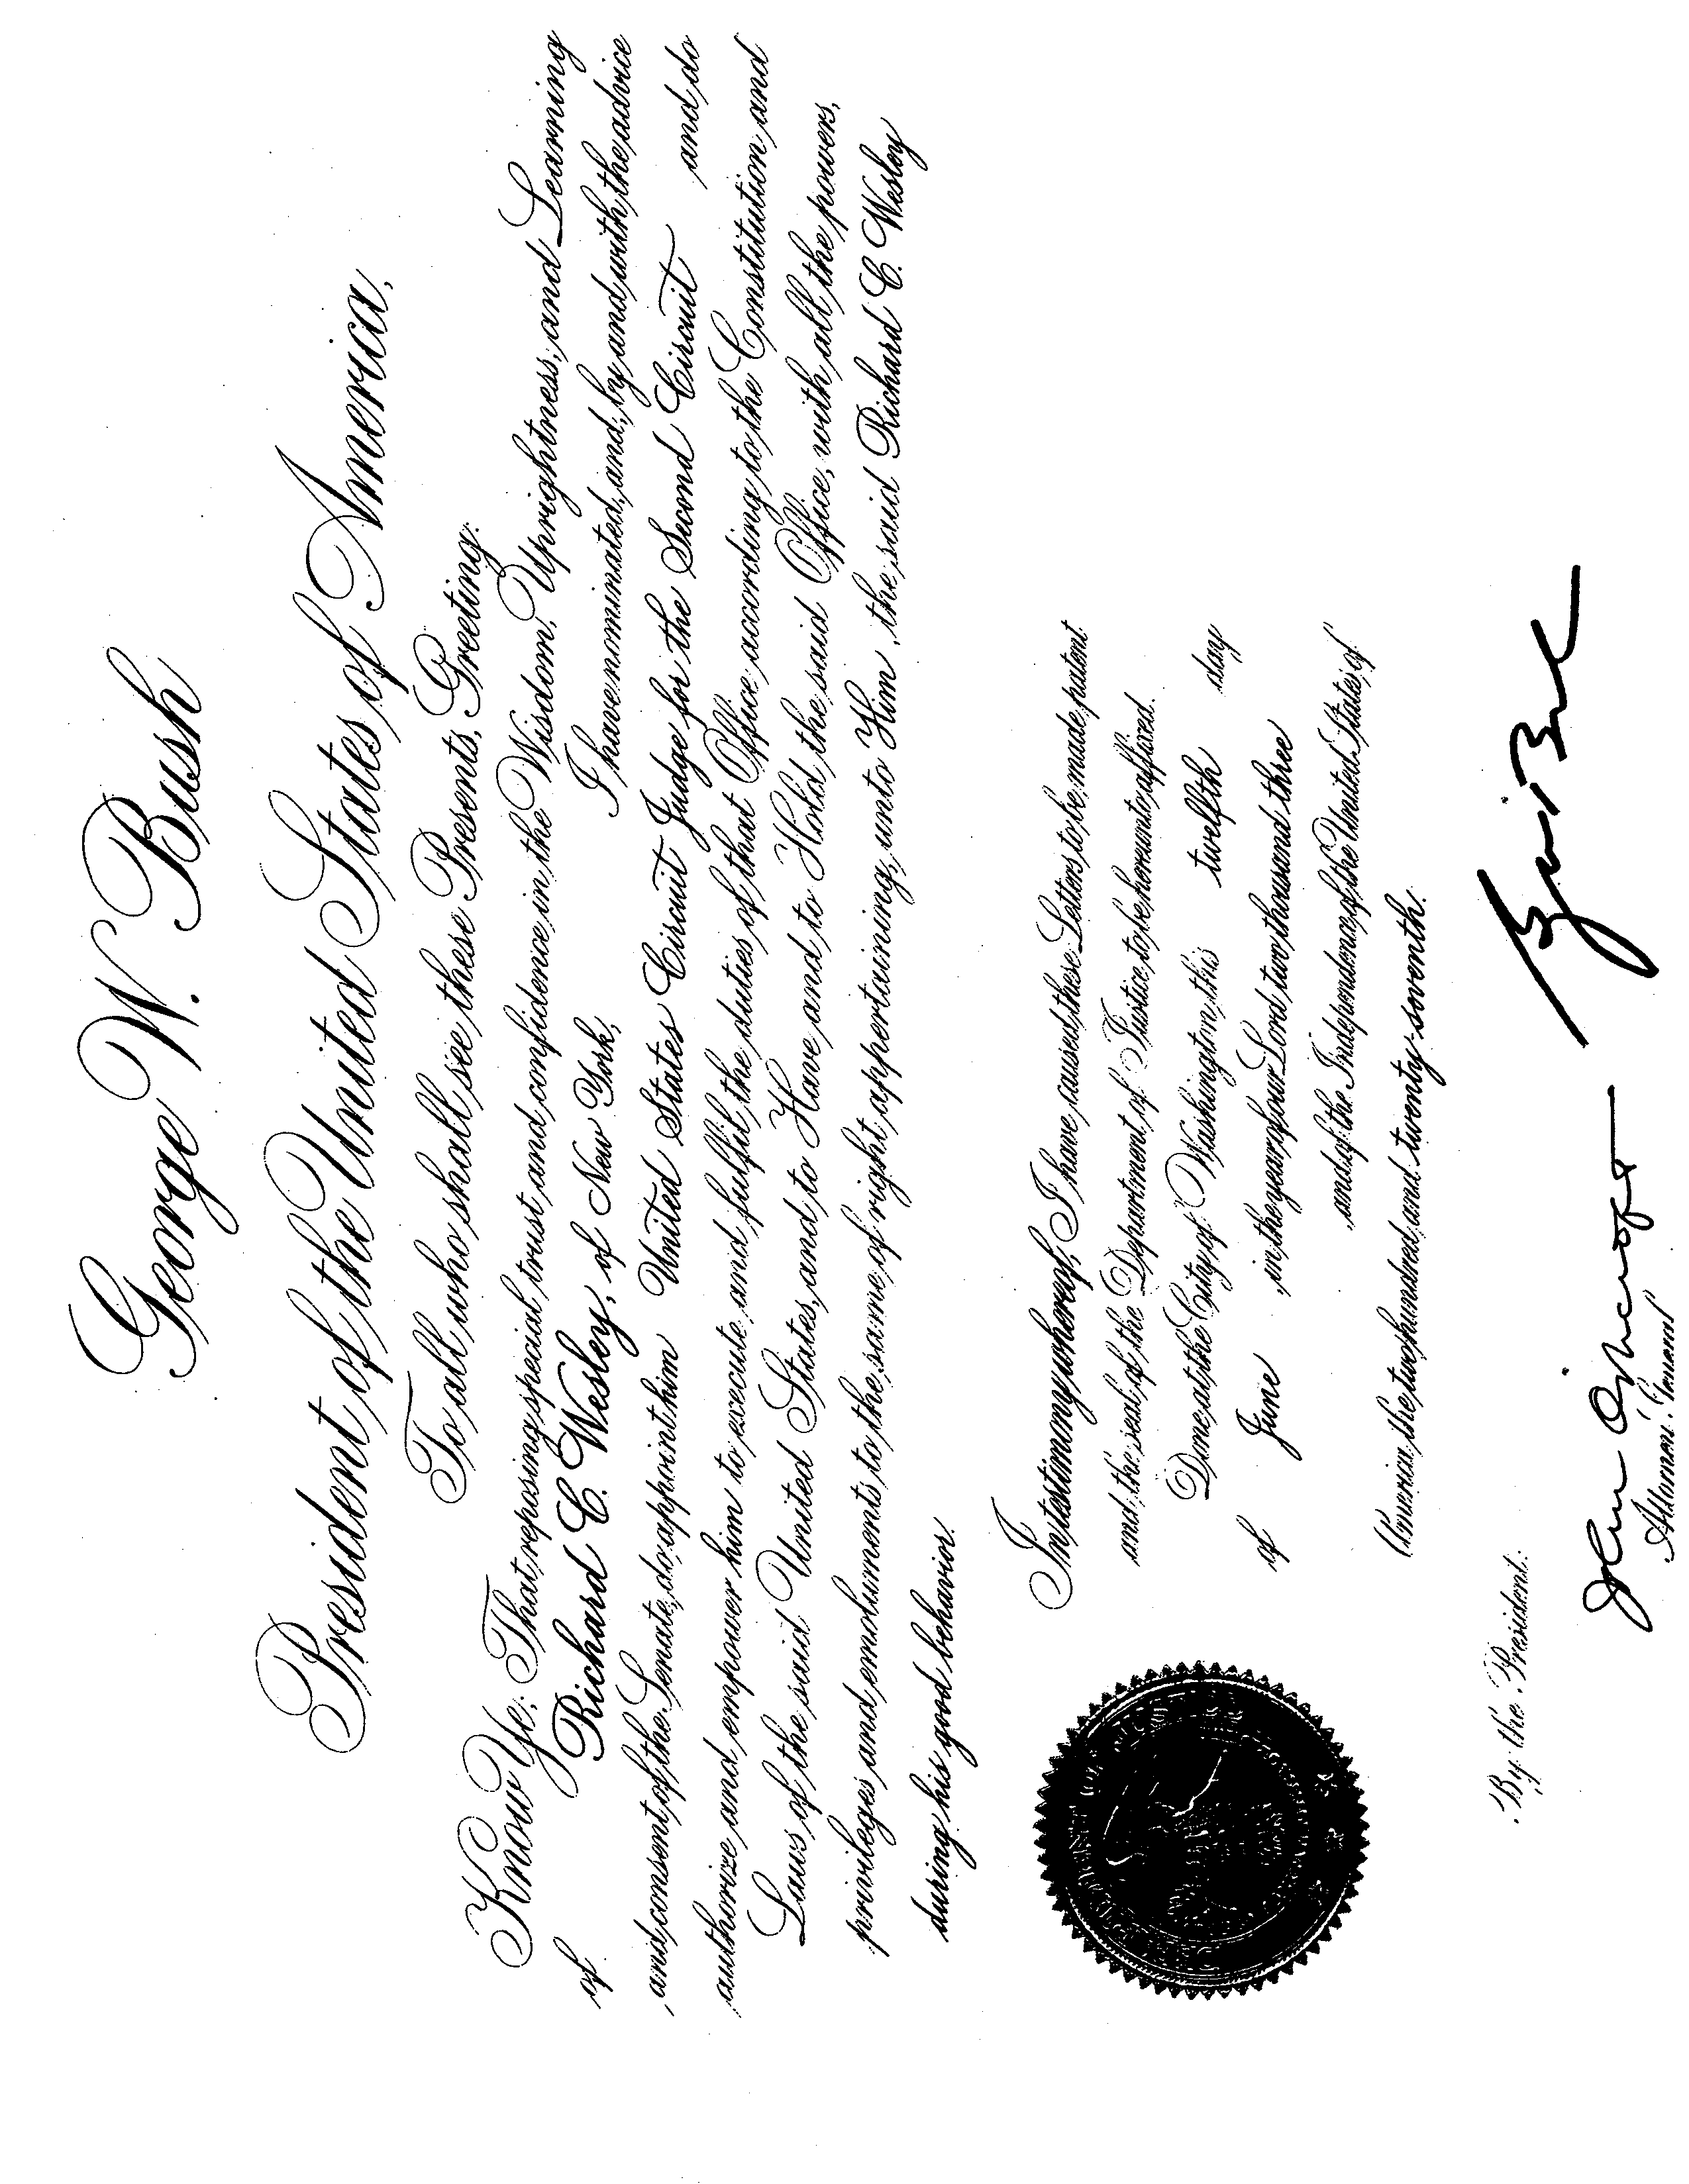 George W. Bush
President of the United States of America,
To all who shall see these Presents, Greeting:
Know Ye; That reposing special trust and confidence in the Wisdom, Uprightness, and Learning
of Richard C. Wesley, of New York, I have nominated, and, by and with the advice
and consent of the Senate, do appoint him United States Circuit Judge for the Second Circuit and do
authorize and empower him to execute and fulfil the duties of that Office according to the Constitution and
Laws of the said United States, and to Have and to Hold the said Office, with all the powers,
privileges and emoluments to the same of right appertaining, unto Him, the said Richard C. Wesley
during his good behavior.
In testimony whereof, I have caused these Letters to be made patent
and the seal of the Department of Justice to be hereunto affixed.
Done at the City of Washington, this twelfth day
of June in the year of our Lord two thousand three
and of the Independence of the United States of
America the two hundred and twenty-seventh.
By the President:
John Ashcroft
Attorney General